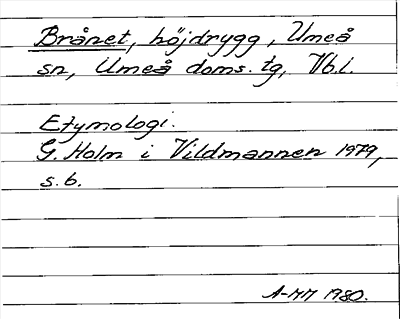 Brånet, höjdrygg, Umeå
sn, Umeå doms. tg, Vb.l.
Etymologi.
G. Holm i Vildmannen 1979,
s. 6.
A-MM 1980.